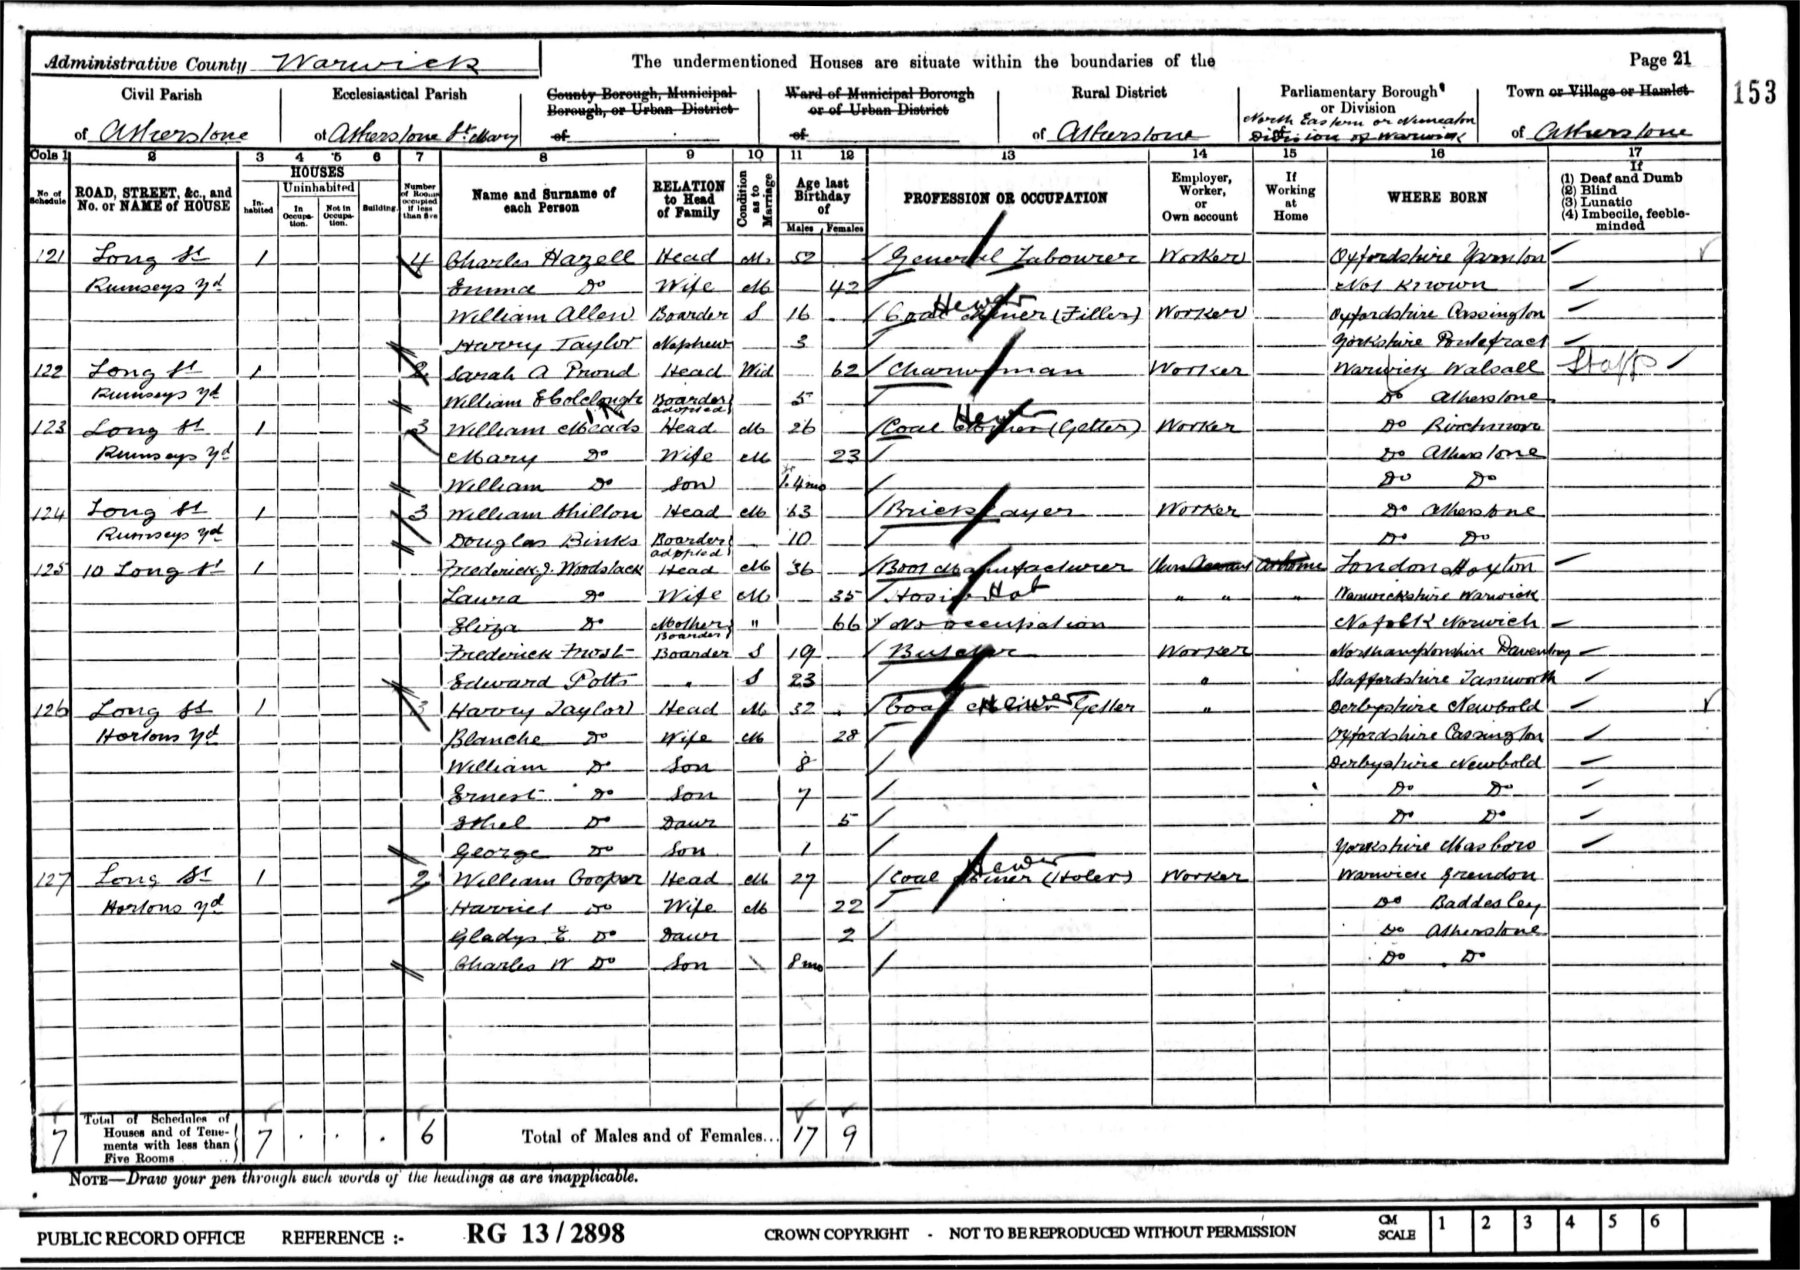 Administrative County Warwick The undermentioned Houses are situate within the boundaries of the Page 21
153
Civil Parish Ecclesiastical Parish County Borough, Municipal Borough, or Urban District Ward of Municipal Borough or of Urban District Rural District Parliamentary Borough or Division Town or Village or Hamlet
of Atherstone of Atherstone St. Mary of of of Atherstone North Eastern or Nuneaton Division of Warwick of Atherstone
Cols 1 2 3 4 5 6 7 8 9 10 11 12 13 14 15 16 17
No. of Schedule ROAD, STREET, &c., and No. or NAME of HOUSE HOUSES Inhabited Uninhabited In Occupation. Not in Occupation. Building. Number of Rooms occupied if less than five Name and Surname of each Person RELATION to Head of Family Condition as to Marriage Age last Birthday of Males Females PROFESSION OR OCCUPATION Employer, Worker, or Own account If Working at Home WHERE BORN If (1) Deaf and Dumb (2) Blind (3) Lunatic (4) Imbecile, feeble-minded
121 Long St 1 4 Charles Hazell Head M 52 General Labourer Worker Oxfordshire Yarnton
Rumseys Yd Emma Do Wife M 42 Not Known
William Allen Boarder S 16 Coal Miner (Filler) Hewer Worker Oxfordshire Cassington
Harry Taylor Nephew 3 Yorkshire Pontefract
122 Long St 1 2 Sarah A Proud Head Wid 62 Charwoman Worker Warwick Walsall Staffs
Rumseys Yd William E Colclough Boarder adopted 5 Do Atherstone
123 Long St 1 3 William Meads Head M 26 Coal Miner (Getter) Hewer Worker Do
Rumseys Yd Mary Do Wife M 23 Do Atherstone
William Do Son 1.4mo Do Do
124 Long St 1 3 William Shilton Head M 63 Bricklayer Worker Do Atherstone
Rumseys Yd Douglas Binks Boarder adopted 10 Do Do
125 10 Long St 1 Frederick J Woodslack Head M 36 Boot Manufacturer Own Account At home London Hoxton
Laura Do Wife M 35 Hosier Hat " " " Warwickshire Warwick
Eliza Do Mother Boarder " 66 No occupation Nofolk Norwich
Frederick Frost Boarder S 19 Butcher Worker Northamptonshire Daventry
Edward Potts " S 23 " Staffordshire Tamworth
126 Long St 1 3 Harvey Taylor Head M 32 Coal Miner Hewer Getter " Derbyshire Newbold
Hortons Yd Blanche Do Wife M 28 Oxfordshire Cassington
William Do Son 8 Derbyshire Newbold
Ernest Do Son 7 Do Do
Ethel Do Daur 5 Do Do
George Do Son 1 Yorkshire Masboro
127 Long St 1 2 William Cooper Head M 27 Coal Miner (Holer) Hewer Worker Warwick Grendon
Hortons Yd Harriet Do Wife M 22 Do Baddesley
Gladys E. Do Daur 2 Do Atherstone
Charles W Do Son 8mo Do Do
7 Total of Schedules of Houses and of Tenements with less than Five Rooms 7 6 Total of Males and of Females... 17 9
NOTE—Draw your pen through such words of the headings as are inapplicable.
PUBLIC RECORD OFFICE REFERENCE :- RG 13 / 2898 CROWN COPYRIGHT - NOT TO BE REPRODUCED WITHOUT PERMISSION CM SCALE 1 2 3 4 5 6